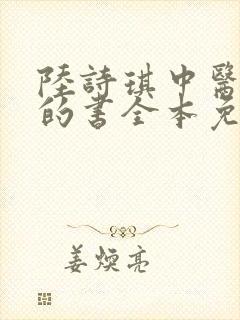 陸詩琪中醫
的書全本免
姜煥亮